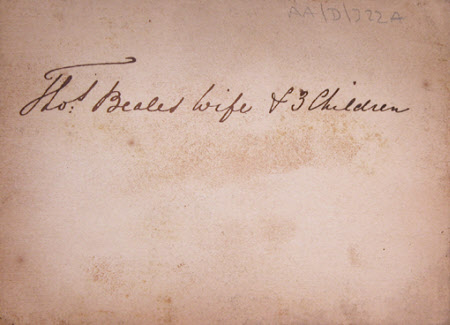 AA/D/322A
Thos. Beales wife & 3 Children